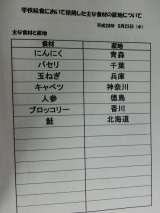 学校給食において使用した主な食材の産地について
平成28年 5月25日（水）
主な食材と産地
食材 産地
にんにく 青森
パセリ 千葉
玉ねぎ 兵庫
キャベツ 神奈川
人参 徳島
ブロッコリー 香川
鮭 北海道